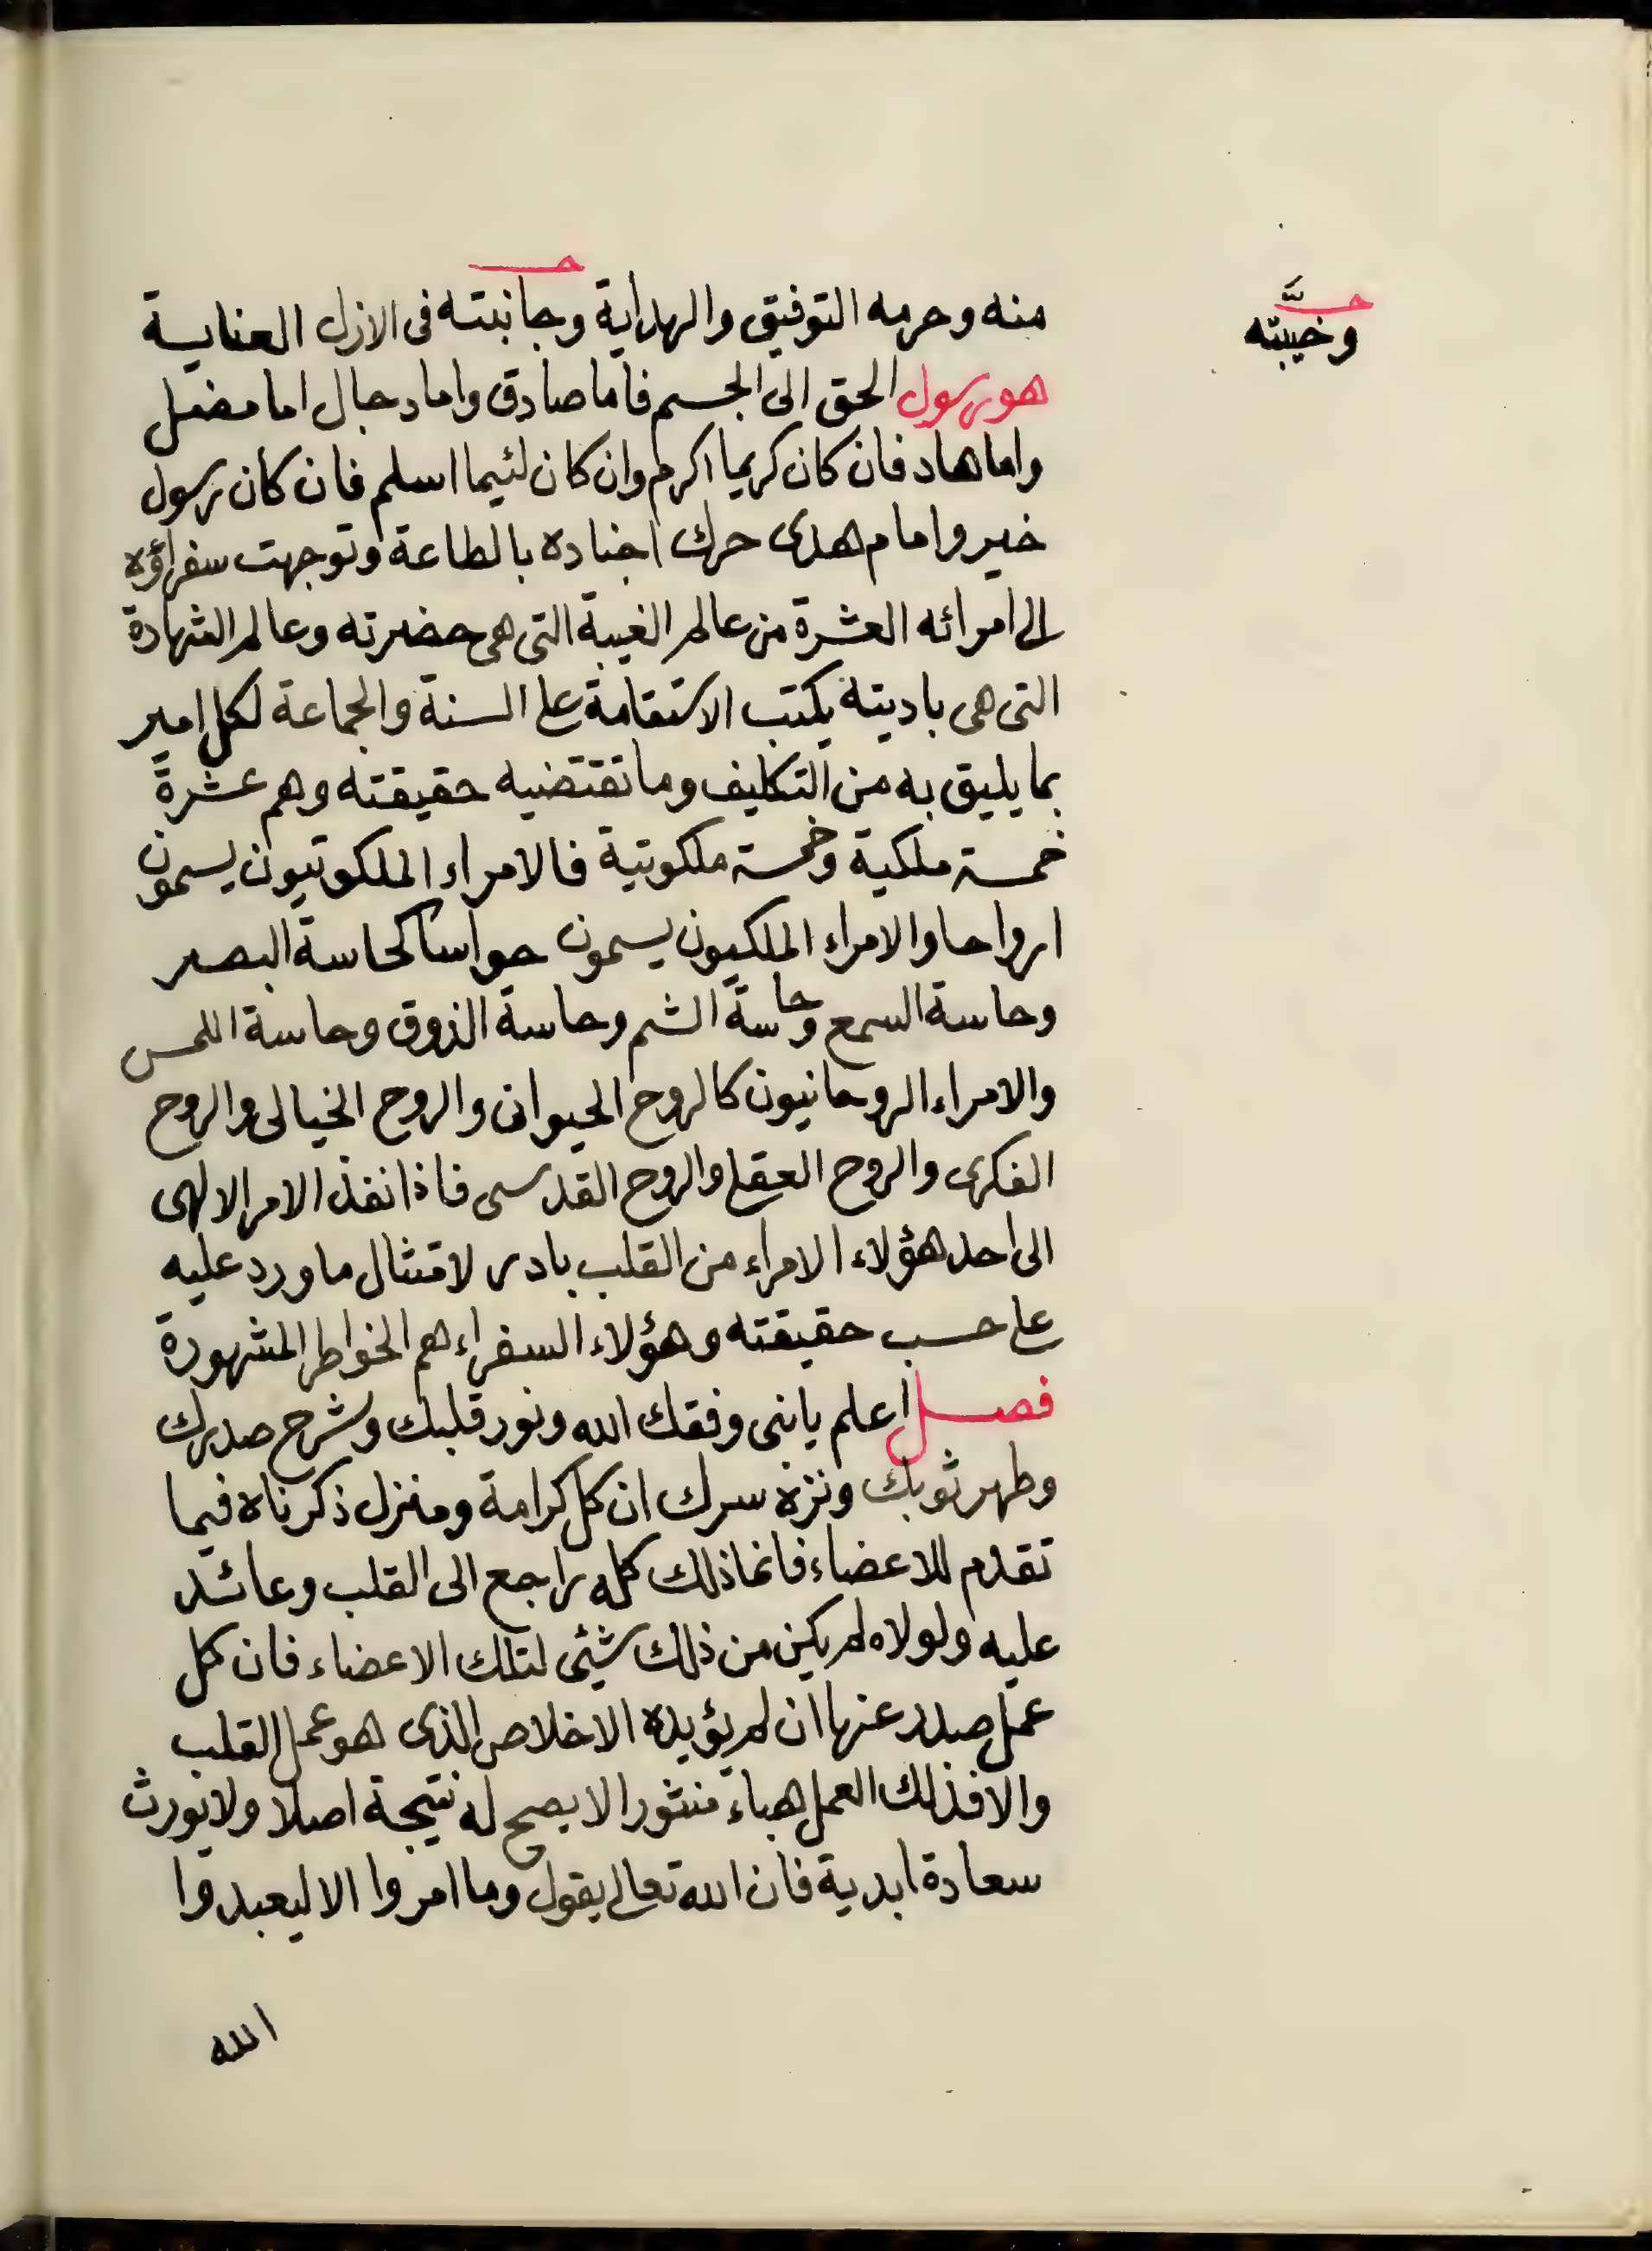 منه وحرمه التوفيق والهداية وجانبته فى الازل العناية
وخيبته
هو رسول الحق الى الجسم فاما صادق واما دجال اما مضل
واما هاد فان كان كريما اكرم وان كان لئيما اسلم فان كان رسول
خير وامام هدى حرك اجناده بالطاعة وتوجهت سفراؤه
الى امرائه العشرة من عالم الغيبة التى هى حضرته وعالم الشهادة
التى هى باديته يكتب الاستقامة على السنة والجماعة لكل امير
بما يليق به من التكليف وما تقتضيه حقيقته وهم عشرة
خمسة ملكية وخمسة ملكوتية فالامراء الملكوتيون يسمون
ارواحا والامراء الملكيون يسمون حواسا كحاسة البصر
وحاسة السمع وحاسة الشم وحاسة الذوق وحاسة اللمس
والامراء الروحانيون كالروح الحيوانى والروح الخيالى والروح
الفكرى والروح العقلى والروح القدسى فاذا نفذ الامر الالهى
الى احد هؤلاء الامراء من القلب بادر لامتثال ما ورد عليه
على حسب حقيقته وهؤلاء السفراء هم الخواطر المشهورة
فصل اعلم يابنى وفقك الله ونور قلبك وشرح صدرك
وطهر ثوبك ونزه سرك ان كل كرامة ومنزل ذكرناه فيما
تقدم للاعضاء فانما ذلك كله راجع الى القلب وعائد
عليه ولولاه لم يكن من ذلك شئى لتلك الاعضاء فان كل
عمل صدر عنها ان لم يؤيده الاخلاص الذى هو عمل القلب
والا فذلك العمل هباء منثورا لا يصح له نتيجة اصلا ولا يورث
سعادة ابدية فان الله تعالى يقول وما امروا الا ليعبدوا
الله